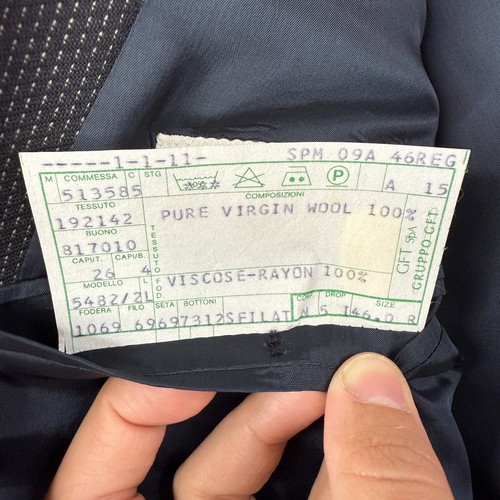 -----1-1-11- SPM 09A 46REG
M COMMESSA C STG
513585 P A 15
TESSUTO COMPOSIZIONI
192142 PURE VIRGIN WOOL 100%
BUONO
817010
TESSUTO
CAPUT. CAPUB.
26 4
GFT SpA
GRUPPO GFT
MODELLO L FOD. VISCOSE-RAYON 100%
5482/2L
FODERA FILO SETA BOTTONI CON DROP SIZE
1069 69697312SFILAT N 5 I46.0 R